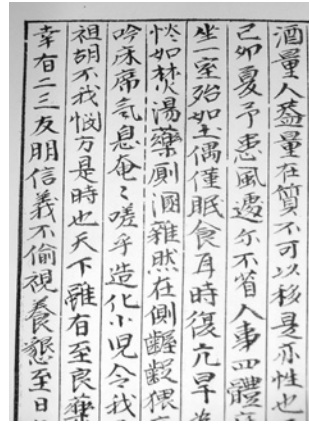 酒量人益量在質不可以移是亦性也
己卯夏予患風遽尓不省人事四體
坐一室殆如土偶僅眠食耳時復亢旱
惔如焚湯藥廁溷雜然在側齷齪猥
吟床席氣息奄〻嗟乎造化小児令我
祖胡不我憫方是時也天下雖有至良藥
幸有二三友朋信義不偷視養懇至日